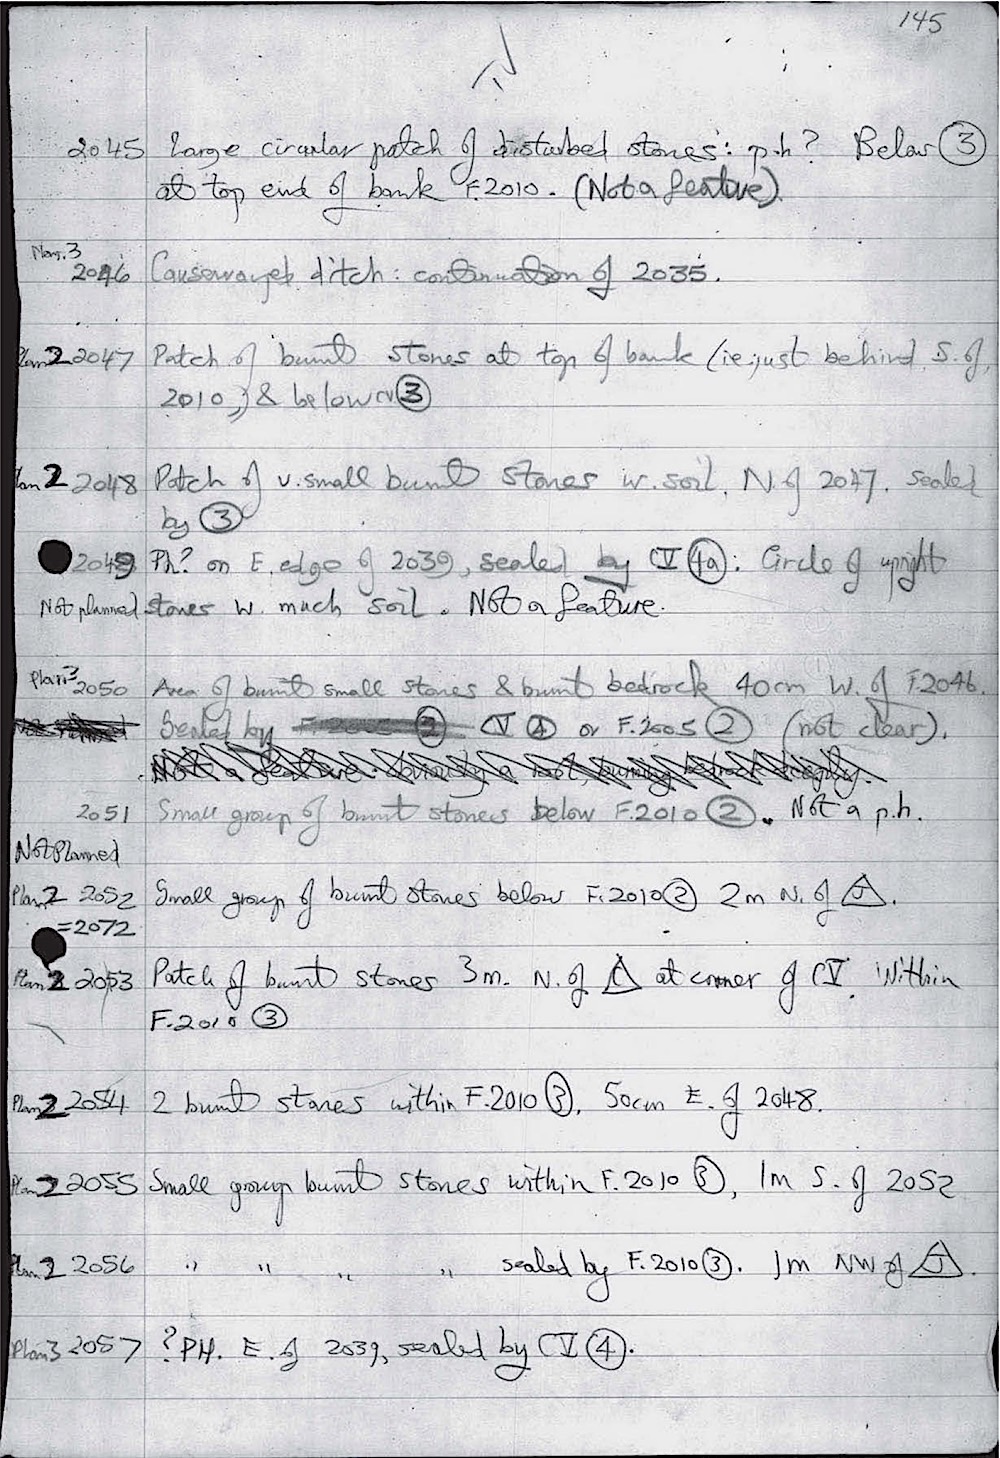 145
2045 Large circular patch of disturbed stones: p.h? Below ③
at top end of bank F.2010. (Not a feature).
2046 Causewayed ditch: continuation of 2035.
Plan 2 2047 Patch of burnt stones at top of bank (ie. just behind, S. of,
2010,) & below ③
Plan 2 2048 Patch of v. small burnt stones w. soil, N. of 2047. Sealed
by ③
2049 Ph? on E. edge of 2039, sealed by CV 4a: Circle of upright
Not planned stones w. much soil. Not a feature.
Plan 3 2050 Area of burnt small stones & burnt bedrock 40cm W. of F.2046.
Sealed by F.2005 ② CV ④ or F.2005 ② (not clear).
Not a feature: obviously a root, burning bedrock deeply.
2051 Small group of burnt stones below F.2010 ②. Not a p.h.
Not Planned
Plan 2 2052 Small group of burnt stones below F.2010 ② 2m N. of J.
=2072
Plan 2 2053 Patch of burnt stones 3m. N. of at corner of CV. Within
F.2010 ③
Plan 2 2054 2 burnt stones within F.2010 ③, 50cm E. of 2048.
Plan 2 2055 Small group burnt stones within F.2010 ③, 1m S. of 2052
Plan 2 2056 " " " " sealed by F.2010 ③. 1m NW of J.
Plan 3 2057 ? PH. E. of 2039, sealed by CV ④.